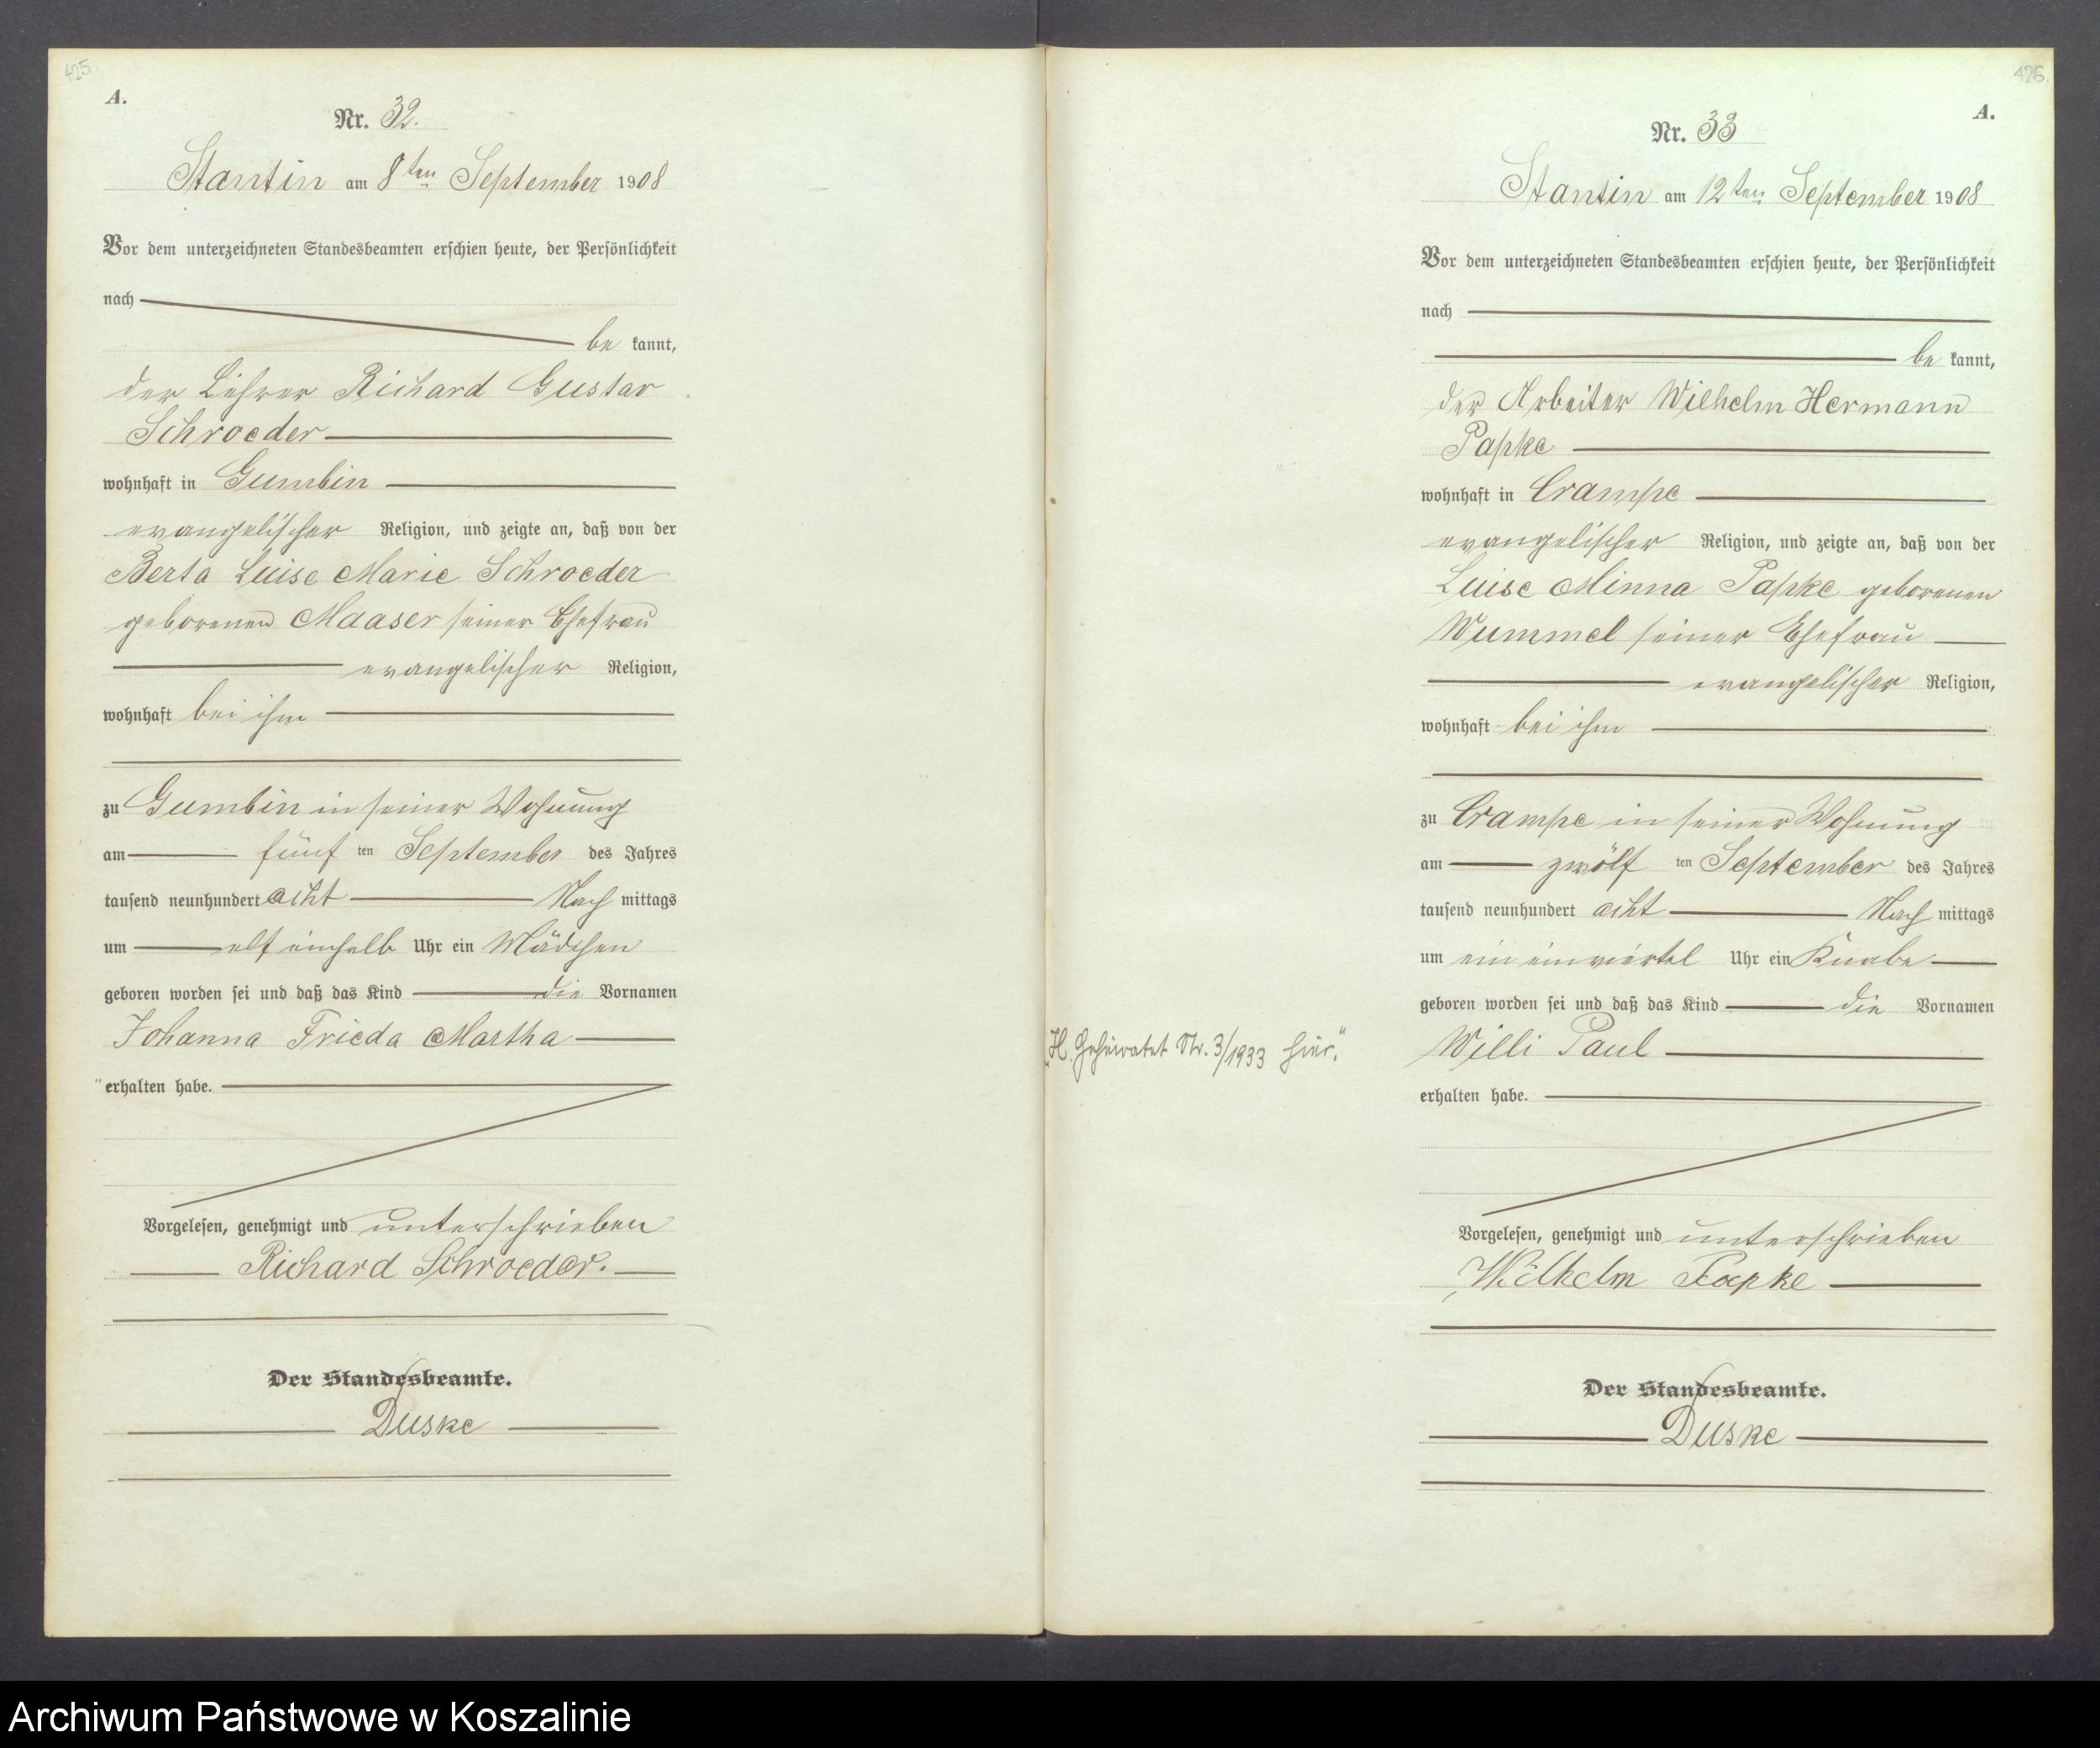 425
A.
Nr. 32.
Stantin am 8ten September 1908
Vor dem unterzeichneten Standesbeamten erschien heute, der Persönlichkeit
nach
be kannt,
der Lehrer Richard Gustav
Schroeder
wohnhaft in Gumbin
evangelischer Religion, und zeigte an, daß von der
Berta Luise Marie Schroeder
geborenen Maaser seiner Ehefrau
evangelischer Religion,
wohnhaft bei ihm
zu Gumbin in seiner Wohnung
am fünf ten September des Jahres
tausend neunhundert acht Nach mittags
um elf einhalb Uhr ein Mädchen
geboren worden sei und daß das Kind die Vornamen
Johanna Frieda Martha
erhalten habe.
Vorgelesen, genehmigt und unterschrieben
Richard Schroeder.
Der Standesbeamte.
Duske
426.
A.
Nr. 33
Stantin am 12ten September 1908
Vor dem unterzeichneten Standesbeamten erschien heute, der Persönlichkeit
nach
be kannt,
der Arbeiter Wilhelm Hermann
Papke
wohnhaft in Crampe
evangelischer Religion, und zeigte an, daß von der
Luise Minna Papke geborenen
Wummel seiner Ehefrau
evangelischer Religion,
wohnhaft bei ihm
zu Crampe in seiner Wohnung
am zwölf ten September des Jahres
tausend neunhundert acht Nach mittags
um ein einviertel Uhr ein Knabe
geboren worden sei und daß das Kind die Vornamen
Willi Paul
erhalten habe.
„H. Geheiratet Nr. 3/1933 hier."
Vorgelesen, genehmigt und unterschrieben
Wilhelm Papke
Der Standesbeamte.
Duske
Archiwum Państwowe w Koszalinie